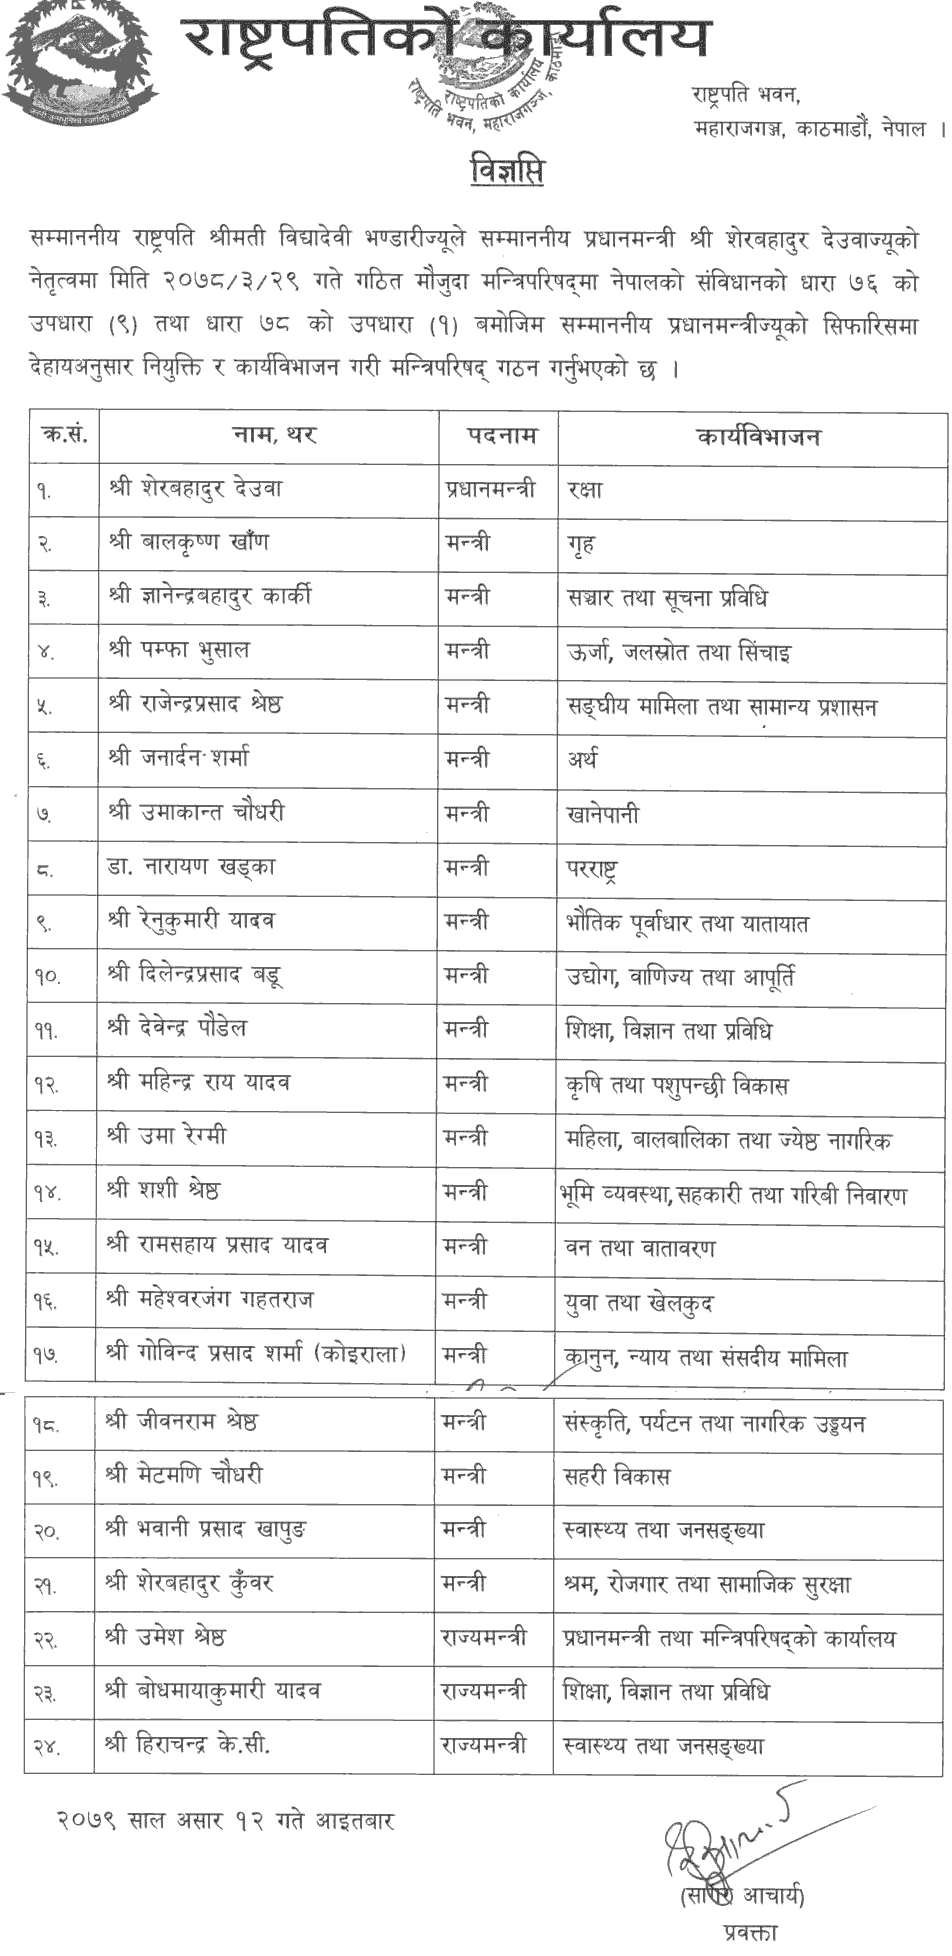 राष्ट्रपतिको कार्यालय
राष्ट्रपतिको कार्यालय
राष्ट्रपति भवन, महाराजगञ्ज, काठमाडौं
राष्ट्रपति भवन,
महाराजगञ्ज, काठमाडौं, नेपाल ।
विज्ञप्ति
सम्माननीय राष्ट्रपति श्रीमती विद्यादेवी भण्डारीज्यूले सम्माननीय प्रधानमन्त्री श्री शेरबहादुर देउवाज्यूको
नेतृत्वमा मिति २०७८/३/२९ गते गठित मौजुदा मन्त्रिपरिषद्मा नेपालको संविधानको धारा ७६ को
उपधारा (९) तथा धारा ७८ को उपधारा (१) बमोजिम सम्माननीय प्रधानमन्त्रीज्यूको सिफारिसमा
देहायअनुसार नियुक्ति र कार्यविभाजन गरी मन्त्रिपरिषद् गठन गर्नुभएको छ ।
क्र.सं. नाम, थर पदनाम कार्यविभाजन
१. श्री शेरबहादुर देउवा प्रधानमन्त्री रक्षा
२. श्री बालकृष्ण खाँण मन्त्री गृह
३. श्री ज्ञानेन्द्रबहादुर कार्की मन्त्री सञ्चार तथा सूचना प्रविधि
४. श्री पम्फा भुसाल मन्त्री ऊर्जा, जलस्रोत तथा सिंचाइ
५. श्री राजेन्द्रप्रसाद श्रेष्ठ मन्त्री सङ्घीय मामिला तथा सामान्य प्रशासन
६. श्री जनार्दन शर्मा मन्त्री अर्थ
७. श्री उमाकान्त चौधरी मन्त्री खानेपानी
८. डा. नारायण खड्का मन्त्री परराष्ट्र
९. श्री रेनुकुमारी यादव मन्त्री भौतिक पूर्वाधार तथा यातायात
१०. श्री दिलेन्द्रप्रसाद बडू मन्त्री उद्योग, वाणिज्य तथा आपूर्ति
११. श्री देवेन्द्र पौडेल मन्त्री शिक्षा, विज्ञान तथा प्रविधि
१२. श्री महिन्द्र राय यादव मन्त्री कृषि तथा पशुपन्छी विकास
१३. श्री उमा रेग्मी मन्त्री महिला, बालबालिका तथा ज्येष्ठ नागरिक
१४. श्री शशी श्रेष्ठ मन्त्री भूमि व्यवस्था, सहकारी तथा गरिबी निवारण
१५. श्री रामसहाय प्रसाद यादव मन्त्री वन तथा वातावरण
१६. श्री महेश्वरजंग गहतराज मन्त्री युवा तथा खेलकुद
१७. श्री गोविन्द प्रसाद शर्मा (कोइराला) मन्त्री कानुन, न्याय तथा संसदीय मामिला
१८. श्री जीवनराम श्रेष्ठ मन्त्री संस्कृति, पर्यटन तथा नागरिक उड्डयन
१९. श्री मेटमणि चौधरी मन्त्री सहरी विकास
२०. श्री भवानी प्रसाद खापुङ मन्त्री स्वास्थ्य तथा जनसङ्ख्या
२१. श्री शेरबहादुर कुँवर मन्त्री श्रम, रोजगार तथा सामाजिक सुरक्षा
२२. श्री उमेश श्रेष्ठ राज्यमन्त्री प्रधानमन्त्री तथा मन्त्रिपरिषद्को कार्यालय
२३. श्री बोधमायाकुमारी यादव राज्यमन्त्री शिक्षा, विज्ञान तथा प्रविधि
२४. श्री हिराचन्द्र के.सी. राज्यमन्त्री स्वास्थ्य तथा जनसङ्ख्या
२०७९ साल असार १२ गते आइतबार
(सागर आचार्य)
प्रवक्ता